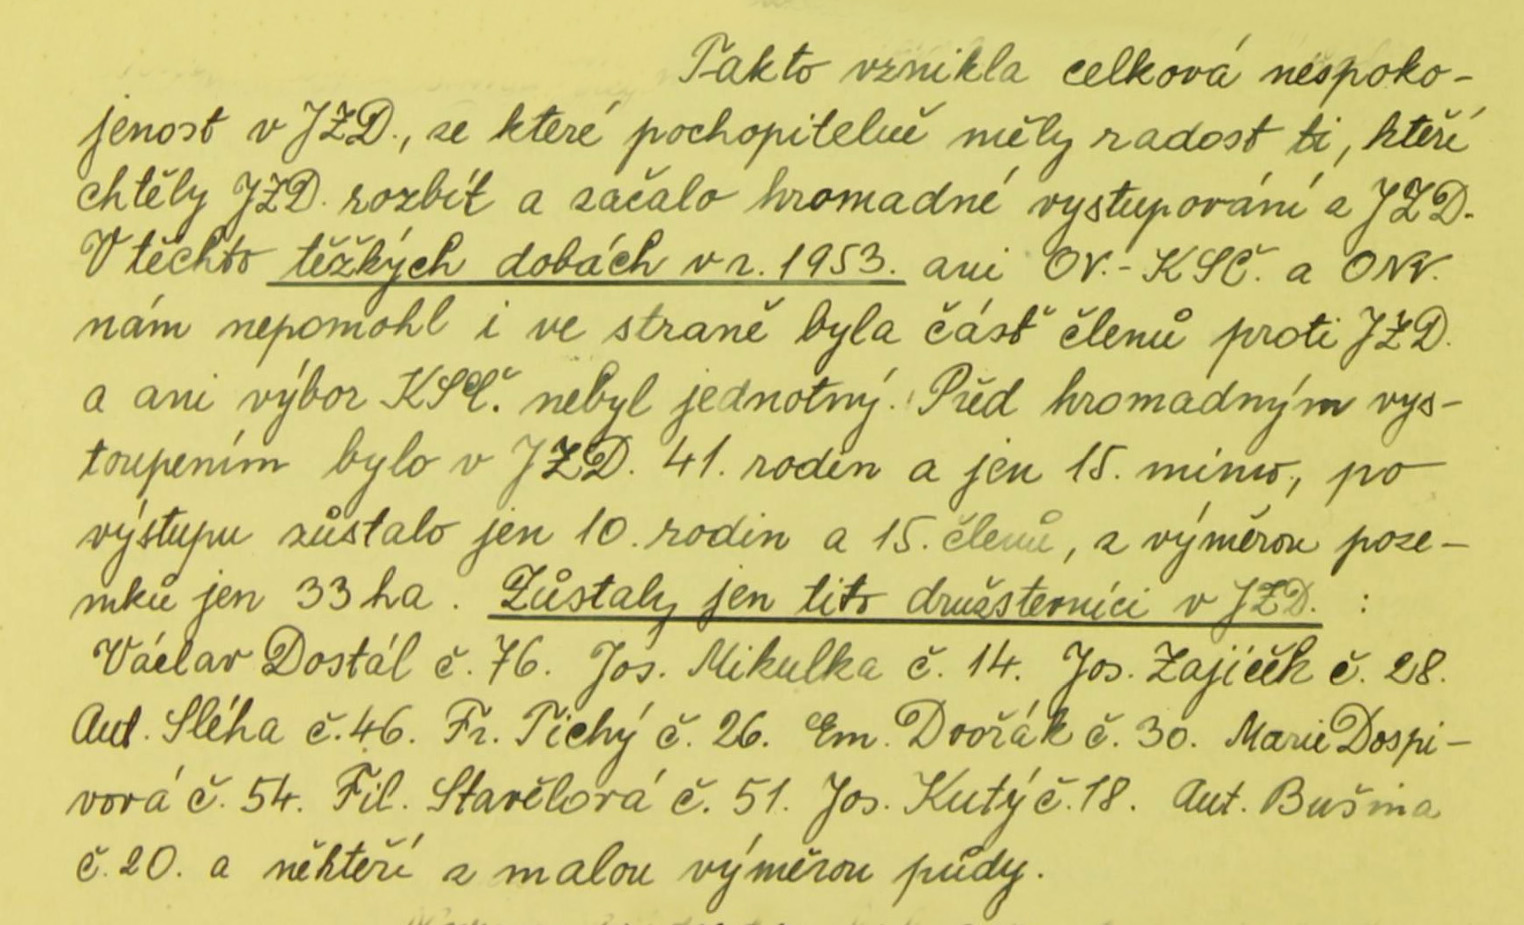 Takto vznikla celková nespoko-
jenost v JZD., ze které pochopitelně měly radost ti, kteří
chtěly JZD. rozbít a začalo hromadné vystupování z JZD.
V těchto těžkých dobách v r. 1953. ani OV.-KSČ. a ONV.
nám nepomohl i ve straně byla část členů proti JZD.
a ani výbor KSČ. nebyl jednotný. Před hromadným vys-
toupením bylo v JZD. 41. rodin a jen 15. mimo, po
výstupu zůstalo jen 10. rodin a 15. členů, z výměrou poze-
mků jen 33 ha. Zůstaly jen tito družstevníci v JZD. :
Václav Dostál č. 76. Jos. Mikulka č. 14. Jos. Zajíček č. 28.
Ant. Sléha č. 46. Fr. Tichý č. 26. Em. Dvořák č. 30. Marie Dospi-
vová č. 54. Fil. Stavělová č. 51. Jos. Kutý č. 18. Ant. Bušina
č. 20. a někteří z malou výměrou půdy.